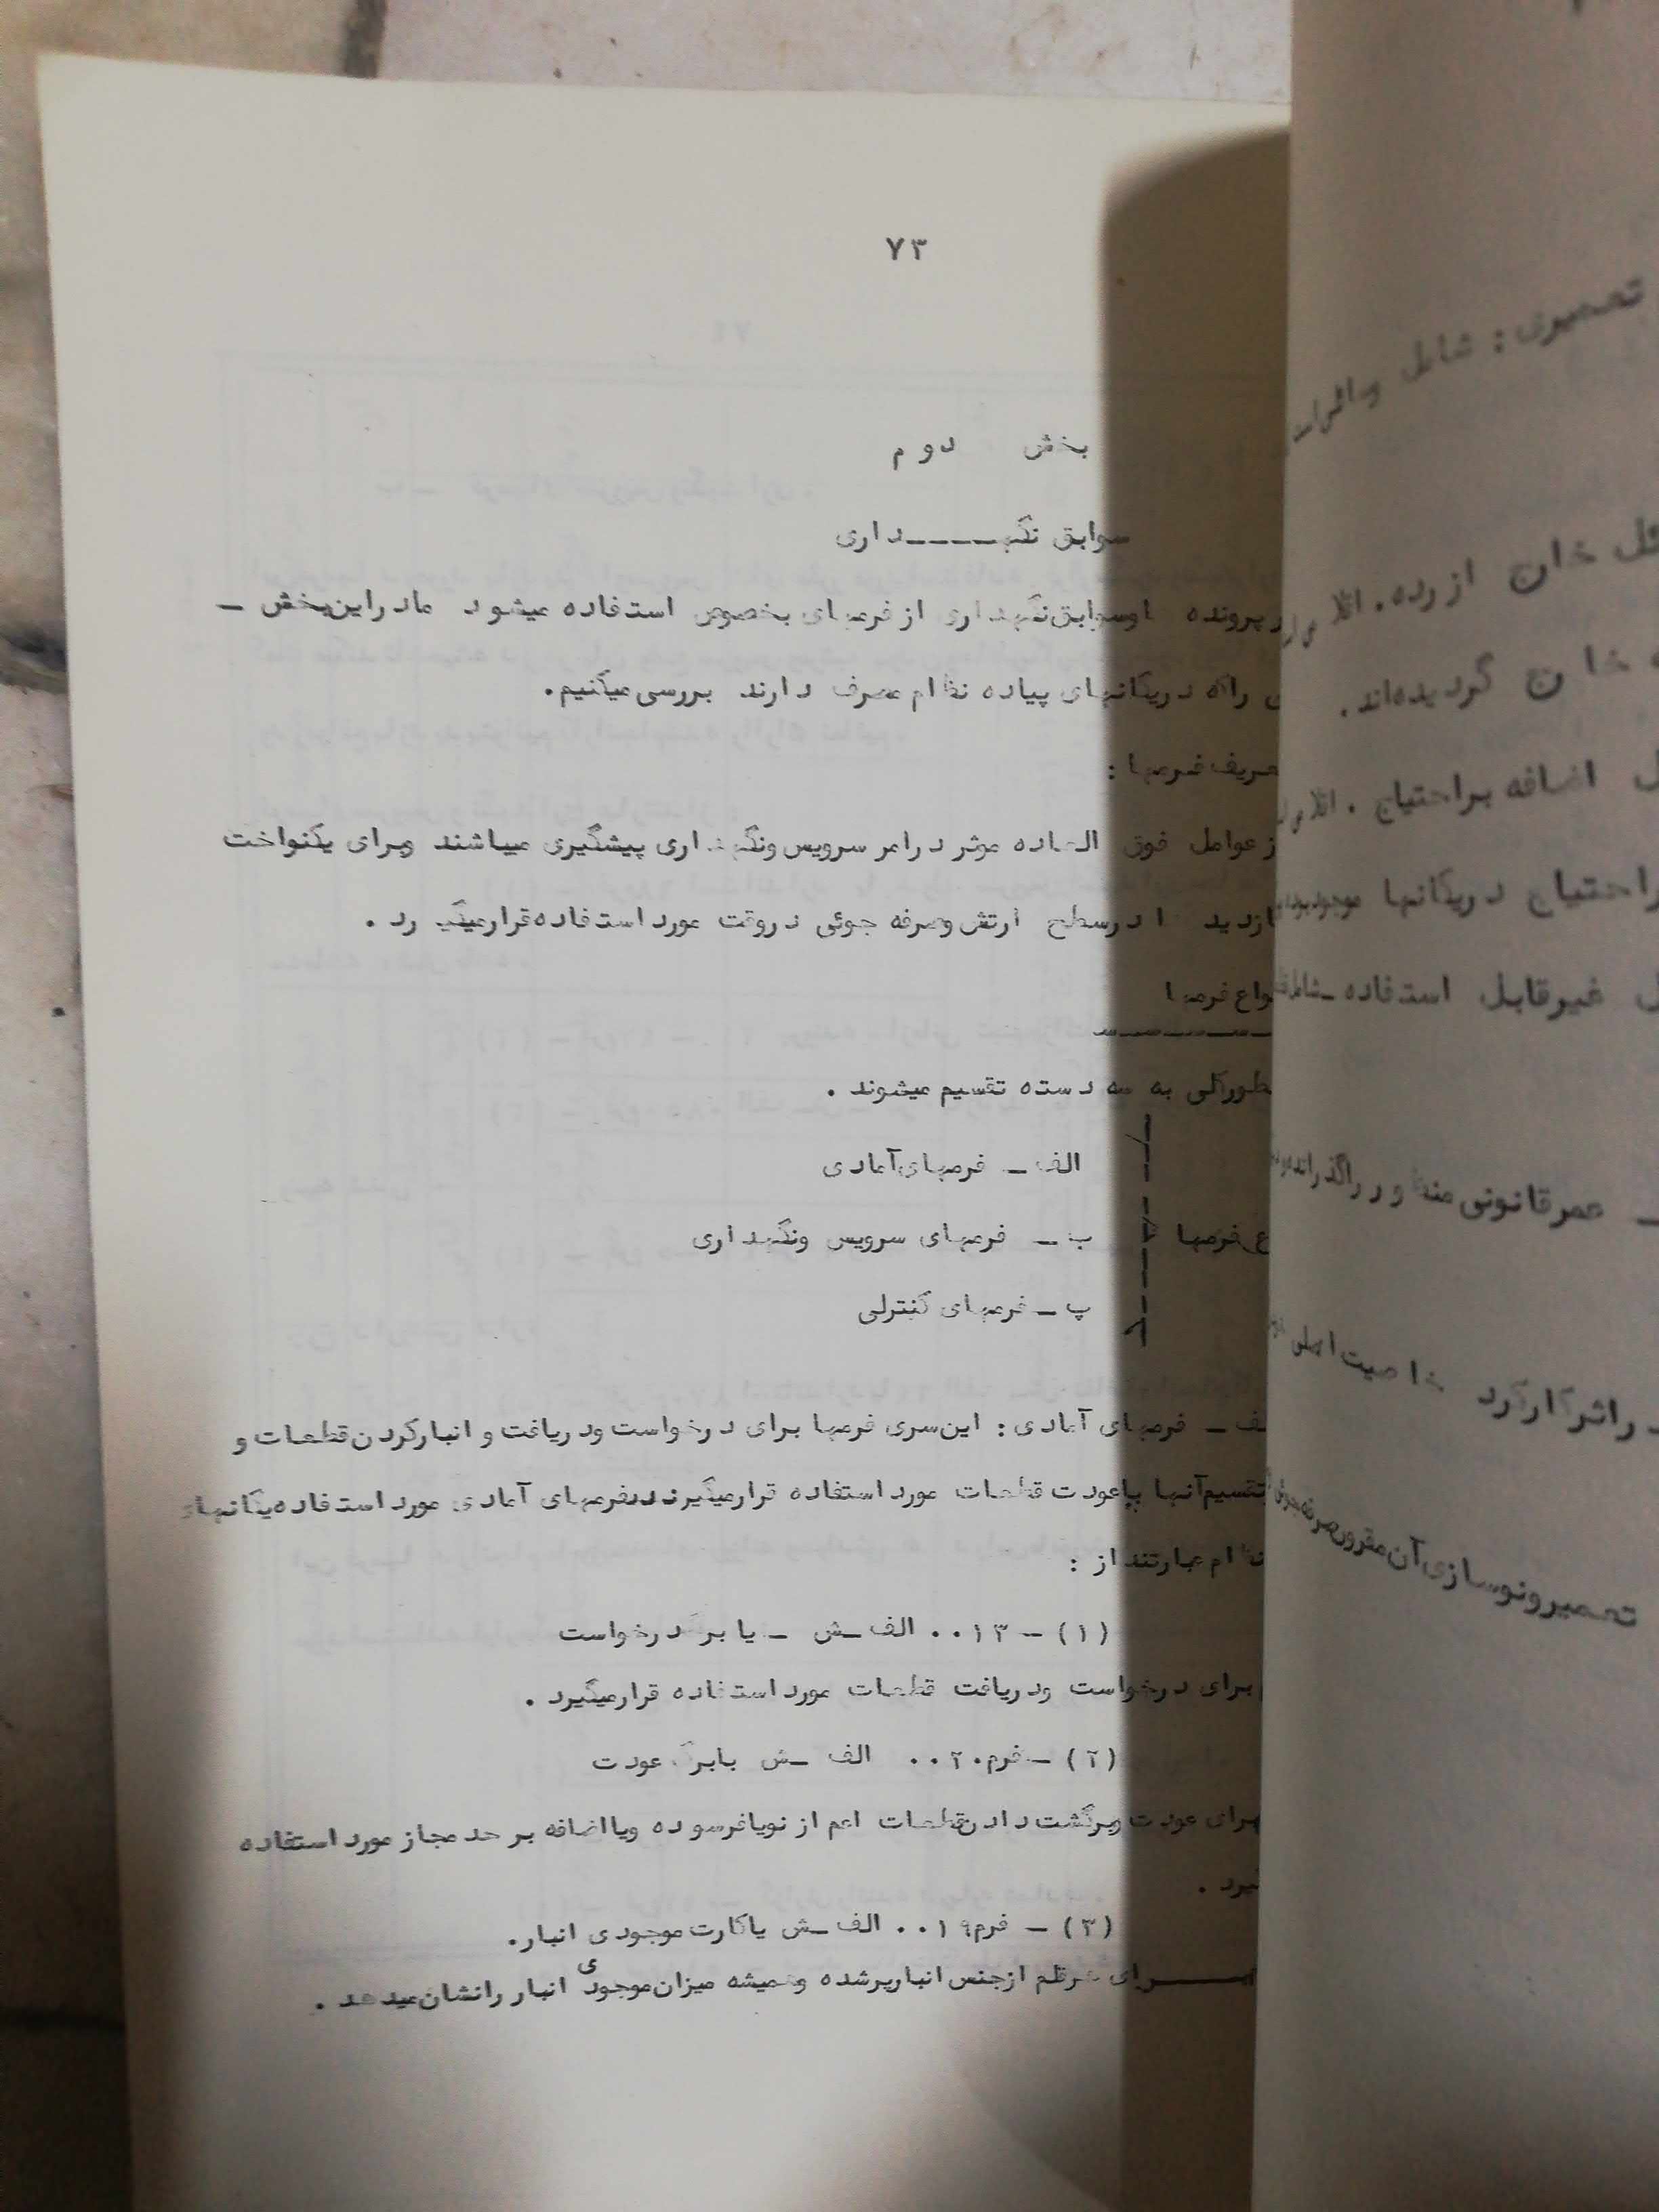 ۷۳
بخش دوم
سوابق نگهـــداری
پرونده سوابق نگهداری از فرمهای بخصوص استفاده میشود مادر این بخش ـ
را که در یکانهای پیاده نظام مصرف دارند بررسی میکنیم.
فرمها :
از عوامل فوق العاده موثر در امر سرویس و نگهداری پیشگیری میباشند وبرای یکنواخت
در سطح ارتش وصرفه جوئی در وقت مورد استفاده قرار میگیرد .
فرمها
بطور کلی به سه دسته تقسیم میشوند .
الف ـ فرمهای آمادی
فرمها ب ـ فرمهای سرویس ونگهداری
پ ـ فرمهای کنترلی
ـ فرمهای آمادی : این سری فرمها برای درخواست ودریافت و انبار کردن قطعات و
تقسیم آنها یا عودت قطعات مورد استفاده قرار میگیرند فرمهای آمادی مورد استفاده یکانهای
عبارتند از :
(۱) ـ ۰۰۱۳ الف ـ ش ـ یا بر درخواست
برای درخواست ودریافت قطعات مورد استفاده قرار میگیرد .
(۲) ـ فرم ۰۰۲۰ الف ـ ش یا برگ عودت
برای عودت وبرگشت دادن قطعات اعم از نو یا فرسوده ویا اضافه بر حد مجاز مورد استفاده
(۳) ـ فرم ۰۰۱۹ الف ـ ش یا کارت موجودی انبار.
هرقلم از جنس انبار پر شده وهمیشه میزان موجودی انبار را نشان میدهد .
تعمیری : شامل
خارج از رده .
خارج گردیده‌اند .
اضافه بر احتیاج .
احتیاج در یکانها
غیر قابل استفاده ـ
ـ عمر قانونی
در اثر کارکرد خاصیت
تعمیر و نوسازی آن مقرون